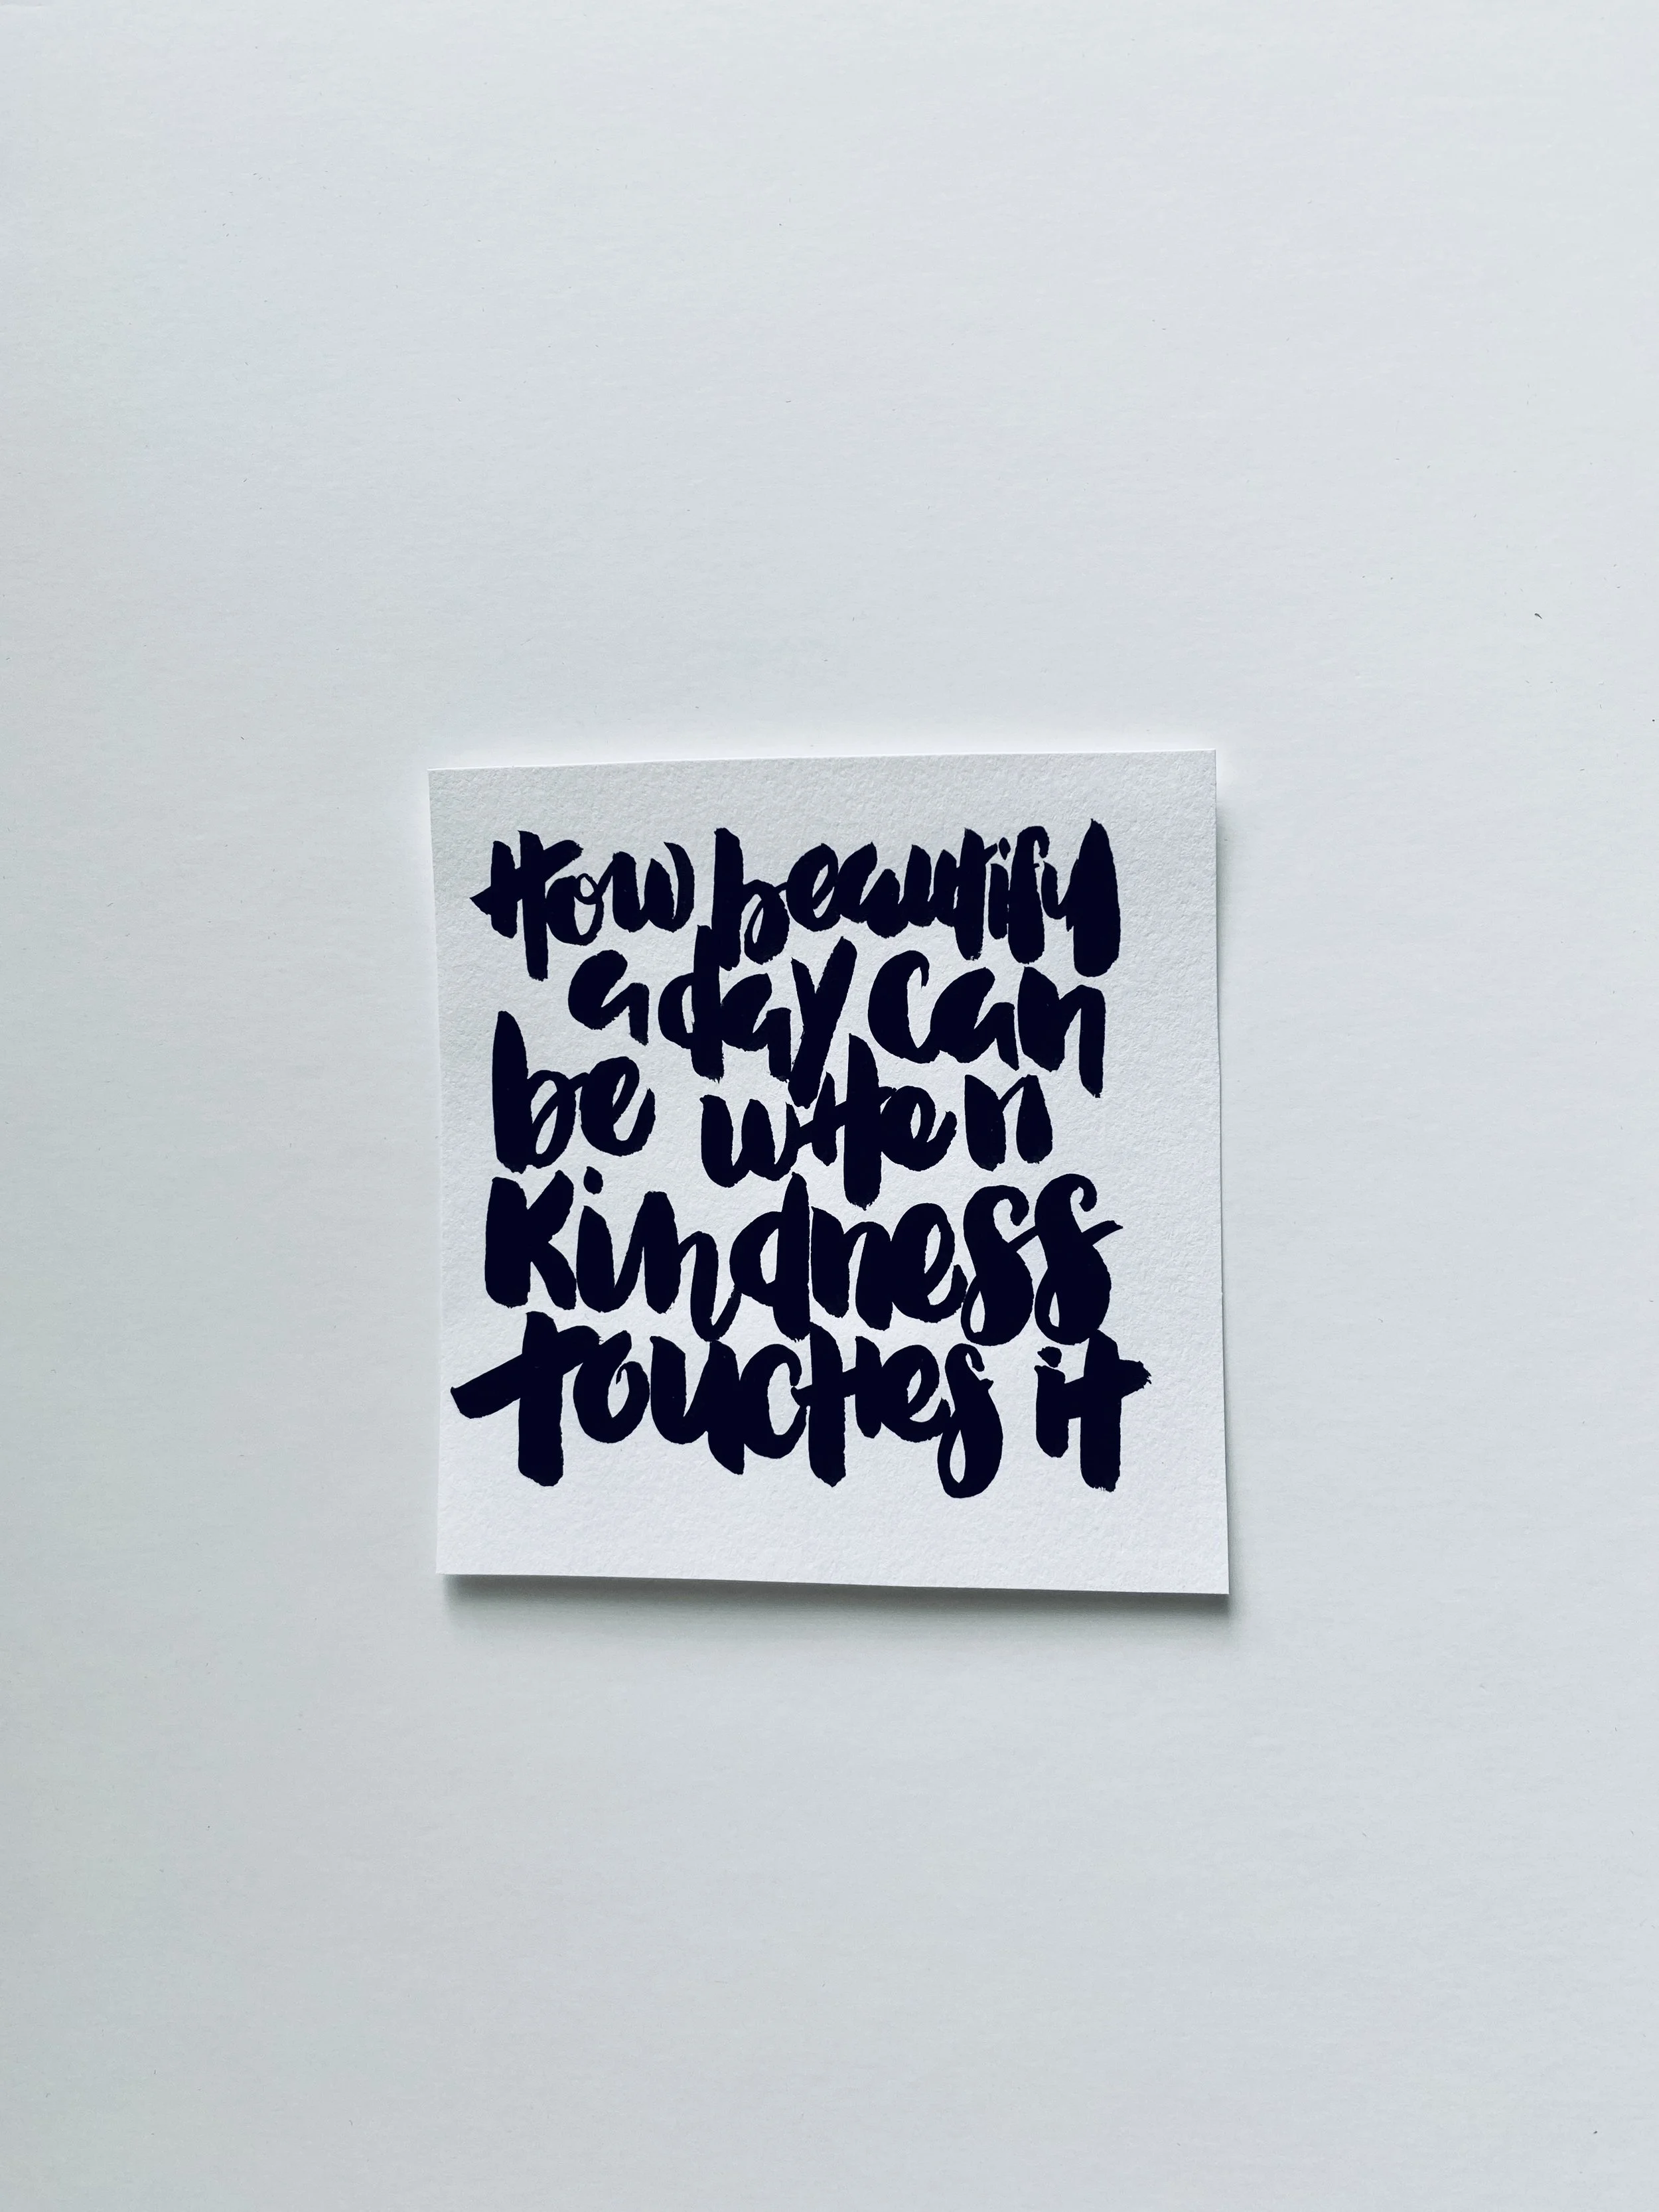 How beautiful
a day can
be when
Kindness
touches it